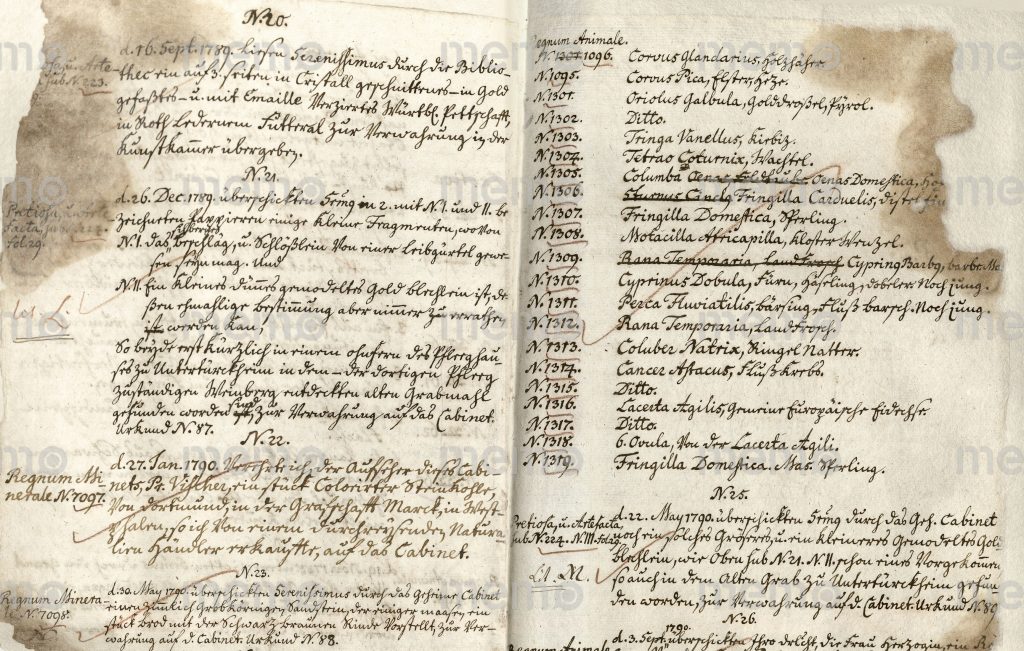 N. 20.
d. 16. Sept. 1789. liesen Serenissimus durch die Biblio-
thec ein auf 3. seiten in Cristall geschnittenes- in Gold
gefaßtes- u. mit Emaille Verziertes Würtbl. Pettschafft,
in Roth Ledernem Futteral zur Verwahrung in der
Kunstkammer übergeben.
sub N. 223.
N. 21.
d. 26. Dec. 1789. überschickten in 2. mit N. I. und II. be
zeichneten Pappieren einige kleine Fragmenten, wovon
N. I. das silberne beschläg, u. Schlößlein Von einer Leibgürtel gewe-
sen seyn mag. Und
N. II. Ein kleines dünnes gemodeltes Gold blechlein ist, de-
ßen ehmahlige bestimmung aber nimmer zu errathen
ist worden kan,
So beyde erst kürzlich in einem ohnfern des Pfleeghau-
ses zu Untertürckheim in dem- der dortigen Pfleeg
zuständigen Weinberg entdeckten alten Grabmahl
gefunden worden sind, zur Verwahrung auf das Cabinet.
Urkund N. 87.
Pretiosa, u. Arte
facta, sub N.
fol. 29.
Lit. L.
N. 22.
d. 27. Jan. 1790. Verehrte ich, der Aufseher dieses Cabi-
nets, Pr. Vischer, ein stück Coloirter Steinkohle,
Von Dortmund, in der Grafschafft Marck, in West-
phalen, so ich Von einem durchreysenden Natura-
lien Händler erkauffte, auf das Cabinet.
Regnum Mi-
nerale N. 7097.
N. 23.
d. 30. May 1790. überschickten Serenissimus durch das Geheime Cabinet
einen zimlich Grobkörnigen Sandstein, der einiger maasen, ein
stück brod mit der Schwarz braunen Rinde Vorstellt, zur Ver-
wahrung auf d. Cabinet. Urkund N. 88.
Regnum Minera
le N. 7098.
Regnum Animale.
N. 1301 1096. Corvus Glandarius, Holzhäher.
N. 1095. Corvus Pica, Elster, Heze.
N. 1301. Oriolus Galbula, Golddroßel, Pyrol.
N. 1302. Ditto.
N. 1303. Tringa Vanellus, Kiebiz.
N. 1304. Tetrao Coturnix, Wachtel.
N. 1305. Columba Oenas Oenas Domestica,
N. 1306. Sturnus Fringilla Carduelis, distel fin
N. 1307. Fringilla Domestica, Sperling.
N. 1308. Motacilla Atricapilla, Kloster Wenzel.
N. 1309. Rana Temporaria, Landfrosch Cyprinq Barbq, barbe.
N. 1310. Cyprinus Dobula, Fürn, Häseling, dobeler. Noch jung.
N. 1311. Perca Fluviatilis, bärsing, Fluß barsch. Noch jung.
N. 1312. Rana Temporaria, Landfrosch.
N. 1313. Coluber Natrix, Ringel Natter.
N. 1314. Cancer Astacus, Fluß Krebs.
N. 1315. Ditto.
N. 1316. Lacerta Agilis, Gemeine Europäische Eidechse.
N. 1317. Ditto.
N. 1318. 6. Ovula, Von der Lacerta Agili.
N. 1319. Fringilla Domestica. Mas. Sperling.
N. 25.
d. 22. May 1790. überschickten durch das Geh. Cabinet
noch ein solches Größeres, u. ein kleineres Gemodeltes Gold
blechlein, wie Oben sub N. 21. N. II, schon eines Vorgekommen,
so auch in dem Alten Grab zu Untertürckheim gefun-
den worden, zur Verwahrung auf d. Cabinet. Urkund N. 89.
Pretiosa, u. Artefacta,
sub N. 224. N. III.
Lit. M.
N. 26.
1790.
d. 3. Sept. überschickten Ihro drlcht, die Frau Herzogin, ein
Regnum Animale